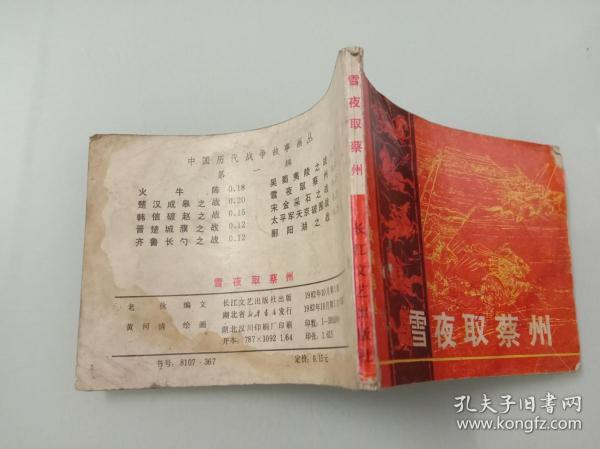 中国历代战争故事画丛
第一辑
火牛阵 0.18
楚汉成皋之战 0.20
韩信破赵之战 0.15
晋楚城濮之战 0.12
齐鲁长勺之战 0.12
吴蜀夷陵之战
雪夜取蔡州
宋金采石之战
鄱阳湖之战
雪夜取蔡州
老伙编文
黄河清绘画
长江文艺出版社出版
湖北省新华书店发行
湖北汉川印刷厂印刷
开本: 787×1092 1/64
1982年10月第1版
印张: 1.625
书号: 8107·367
定价: 0.15元
雪夜取蔡州
长江文艺出版社
雪夜取蔡州
孔夫子旧书网
www.kongfz.com